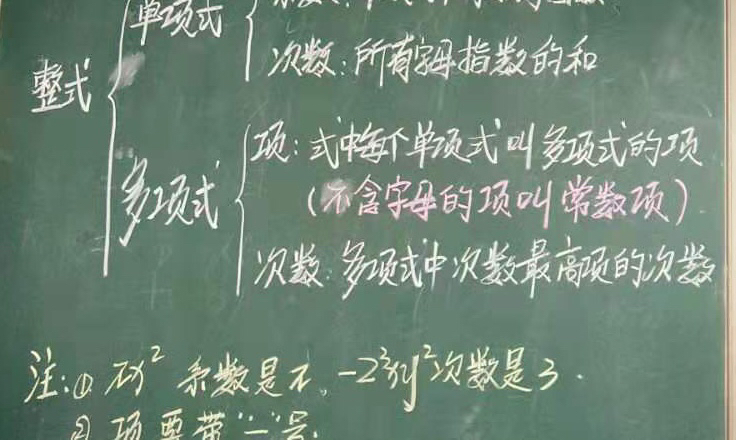 单项式
次数:所有字母指数的和
整式
项:式中每个单项式叫多项式的项
多项式
(不含字母的项叫常数项)
次数:多项式中次数最高项的次数
注:① πx² 系数是π, -2³xy²次数是3.
② 项要带“-”号.